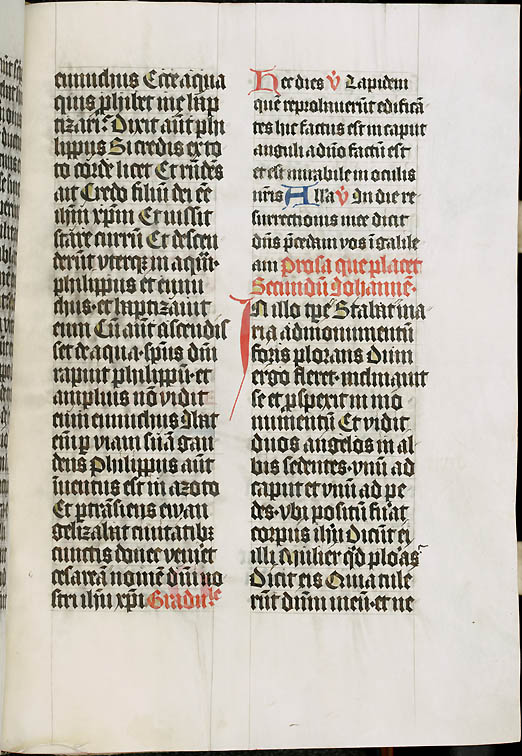 eunuchus Ecce aqua
quis ꝓhibet me bap
tizari? Dixit aūt phi
lippus Si credis ex to
to corde licet Et rn̄dēs
ait Credo filiū dei eē
ihm̄ xp̄m Et iussit
stare currū Et descen
derūt vterqꝫ in aquā·
philippus et eunu
chus· et baptizauit
eum Cū aūt ascendis
set de aqua· sp̄us dn̄i
rapuit philippū· et
amplius nō vidit
eum eunuchus Ibat
em̄ ꝑ viam suā gau
dens Philippus aūt
īuentus est in azoto
Et ꝑtrāsiens ewan
gelizabat ciuitatibꝫ
cunctis donec veniret
cesareā nomē dn̄i no
stri ihū xp̄i Gradule
Hec dies ꝟ Lapidem
quē reprobauerūt edificā
tes hic factus est in caput
anguli a dn̄o factū est
et est mirabile in oculis
nr̄is Alla ꝟ In die re
surrectionis mee dicit
dn̄s p̄cedam vos ī galile
am Prosa que placet
Secundū Johannē·
IN illo tꝑe Stabat ma
ria ad monumentū
foris plorans Dum
ergo fleret· inclinauit
se et ꝓspexit in mo
numentū Et vidit
duos angelos in al
bis sedentes· vnū ad
caput et vnū ad pe
des· vbi positū fuāt
corpus ihū Dicūt ei
illi Mulier qͥd ploras
Dicit eis Quia tule
rūt dn̄m meū· et ne